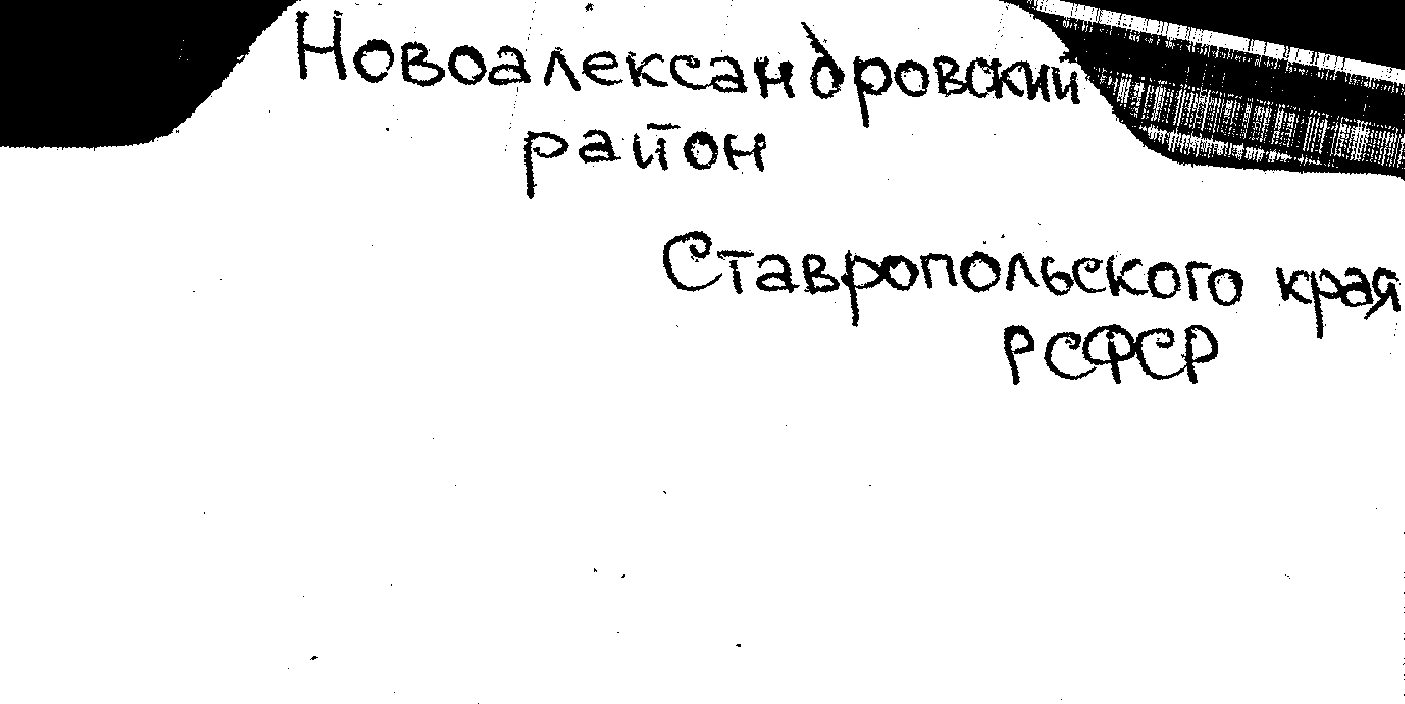 Новоалександровский
район
Ставропольского края
РСФСР